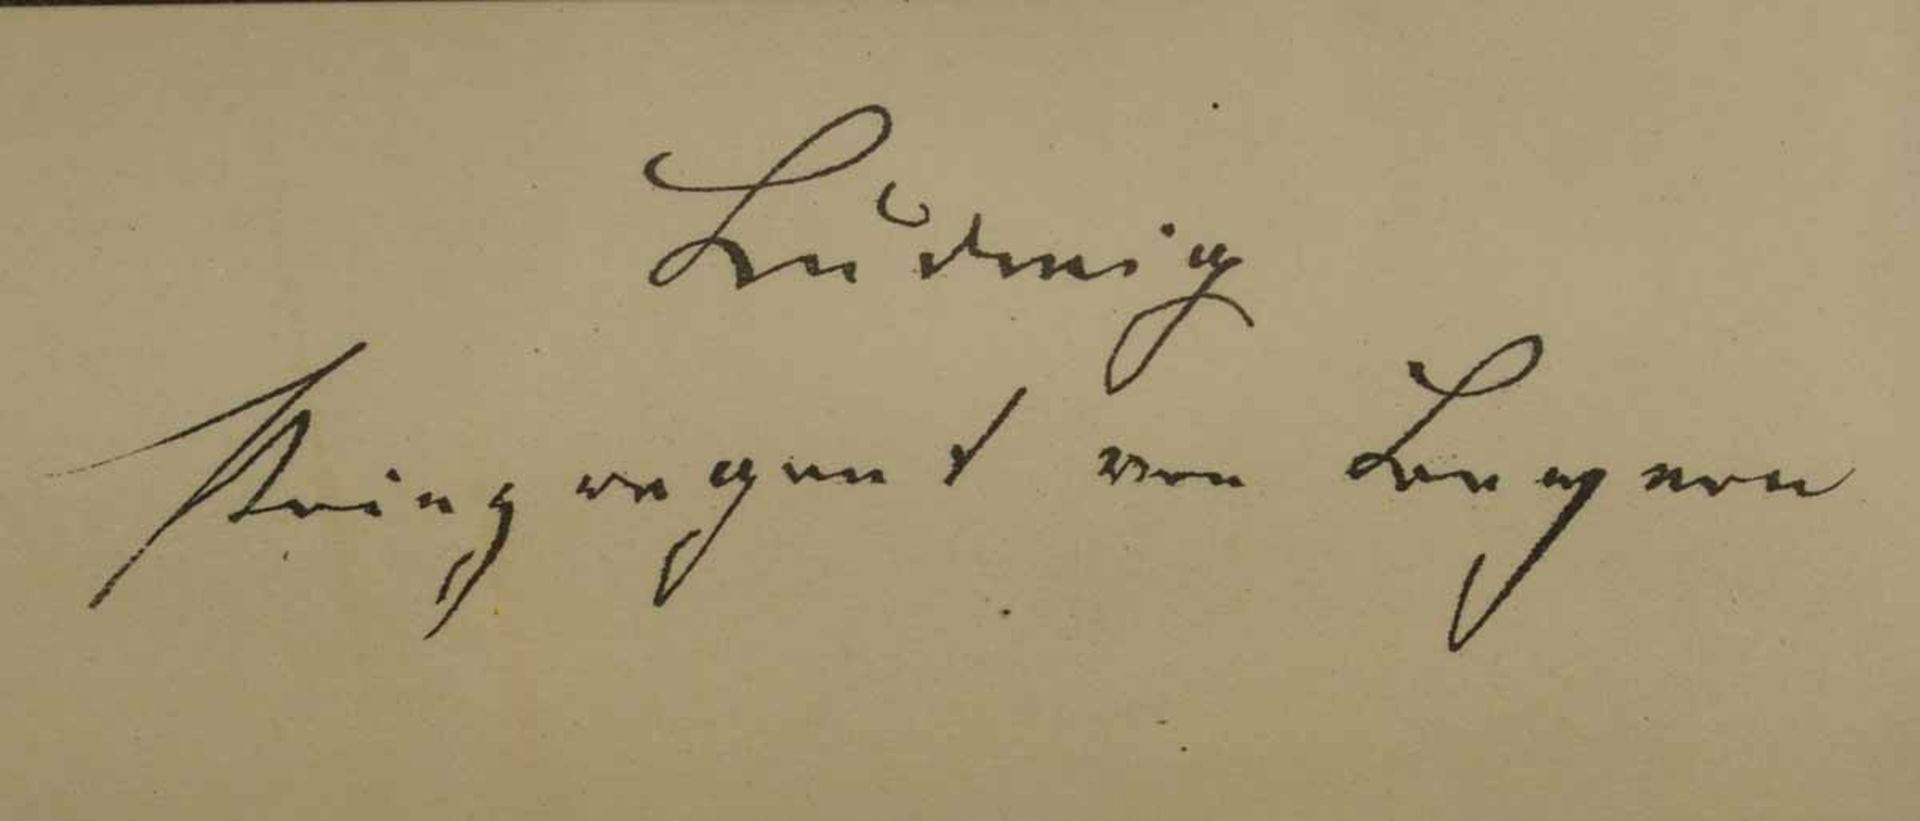 Ludwig
Prinzregent von Bayern